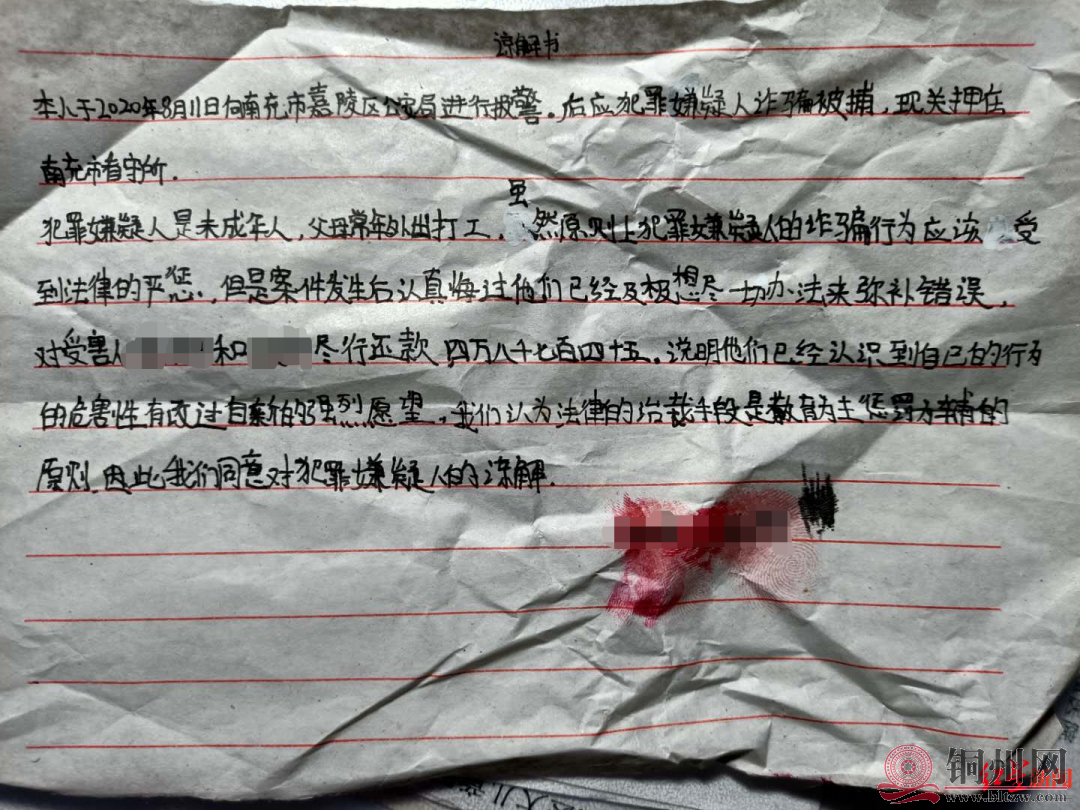 谅解书
本人于2020年8月11日向南充市嘉陵区公安局进行报警。后应犯罪嫌疑人诈骗被捕，现关押在
南充市看守所.
犯罪嫌疑人是未成年人，父母常年外出打工，虽然原则上犯罪嫌疑人的诈骗行为应该受
到法律的严惩，但是案件发生后认真悔过他们已经及极想尽一切办法来弥补错误，
对受害人和尽行还款四万八千七百四十五。说明他们已经认识到自己的行为
的危害性有改过自新的强烈愿望，我们认为法律的治裁手段是教育为主惩罚为辅的
原则，因此我们同意对犯罪嫌疑人的谅解.
铜州网
www.bltszw.com